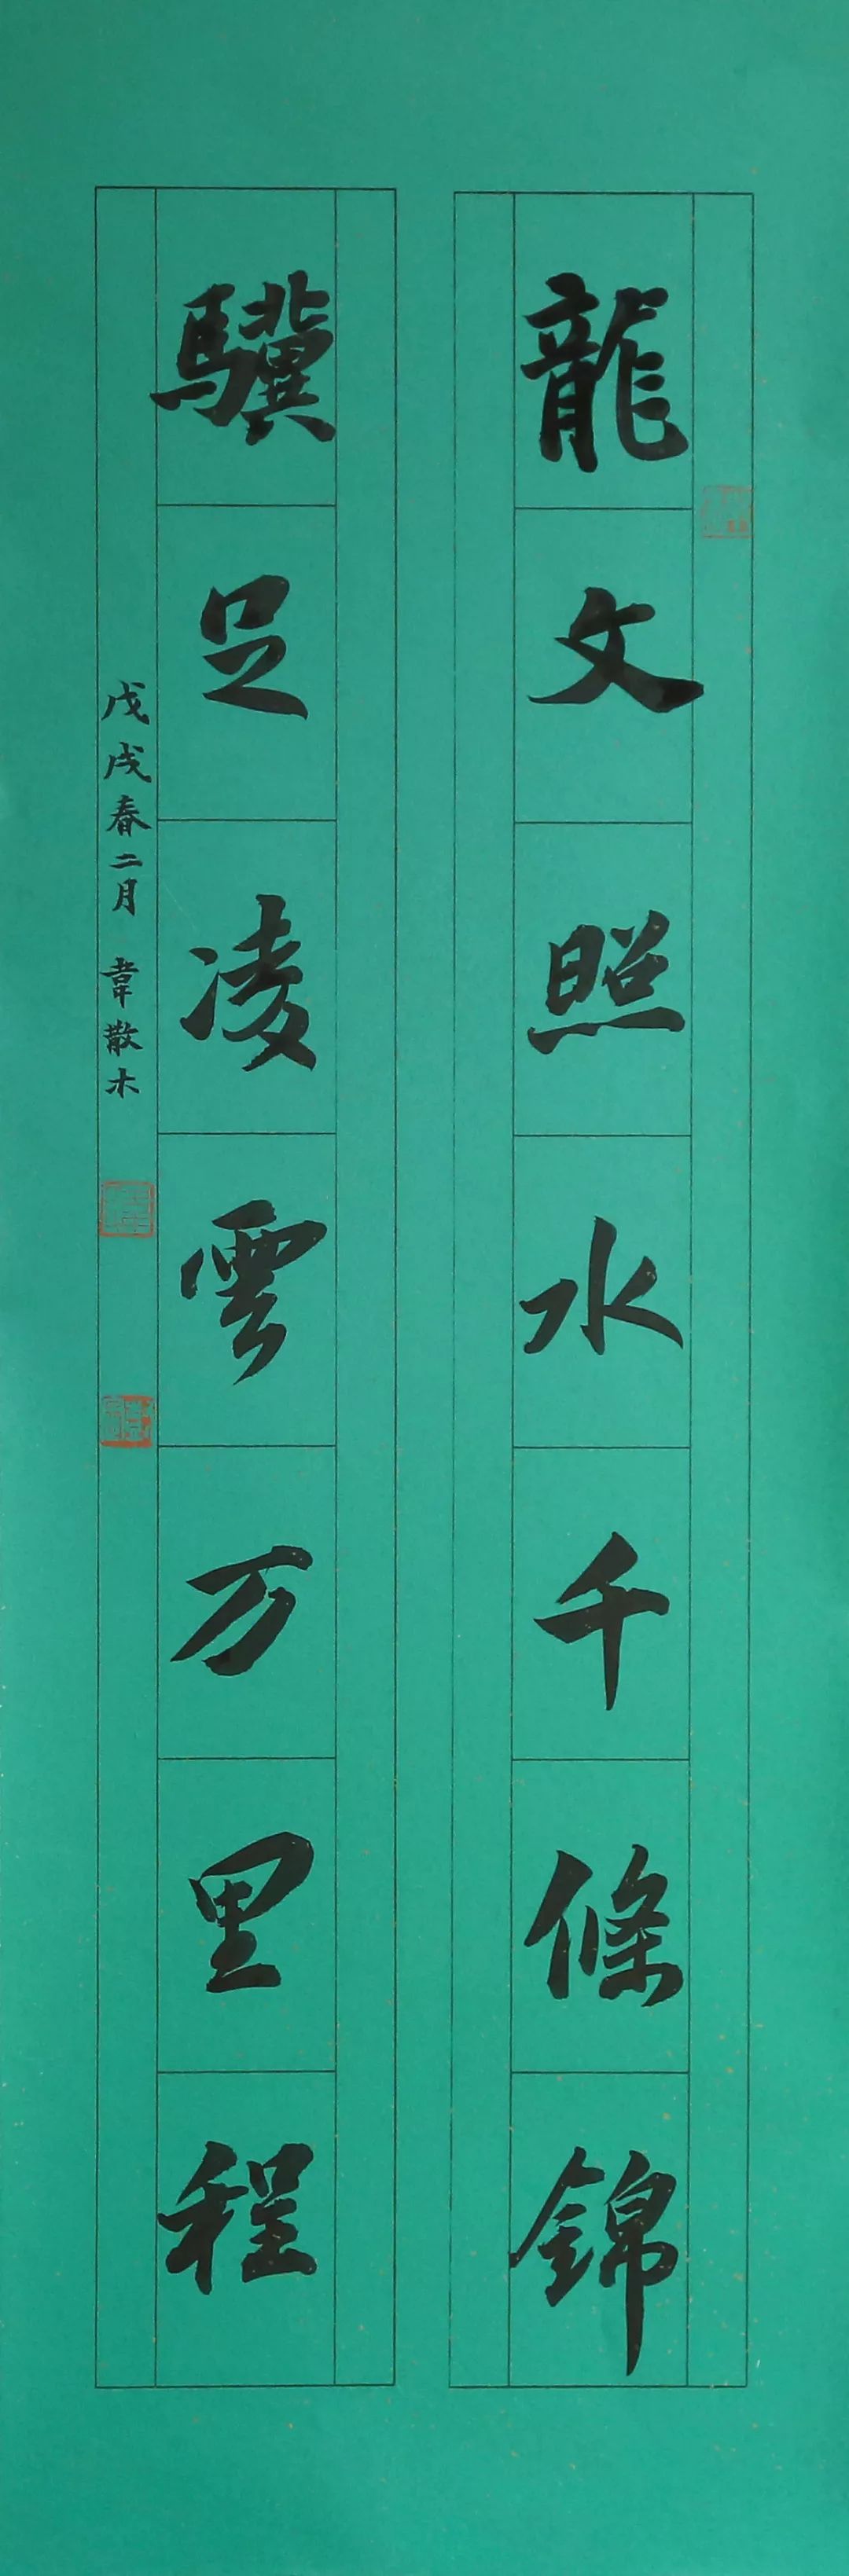 龍文照水千條錦
驥足凌雲万里程
戊戌春二月 韋散木